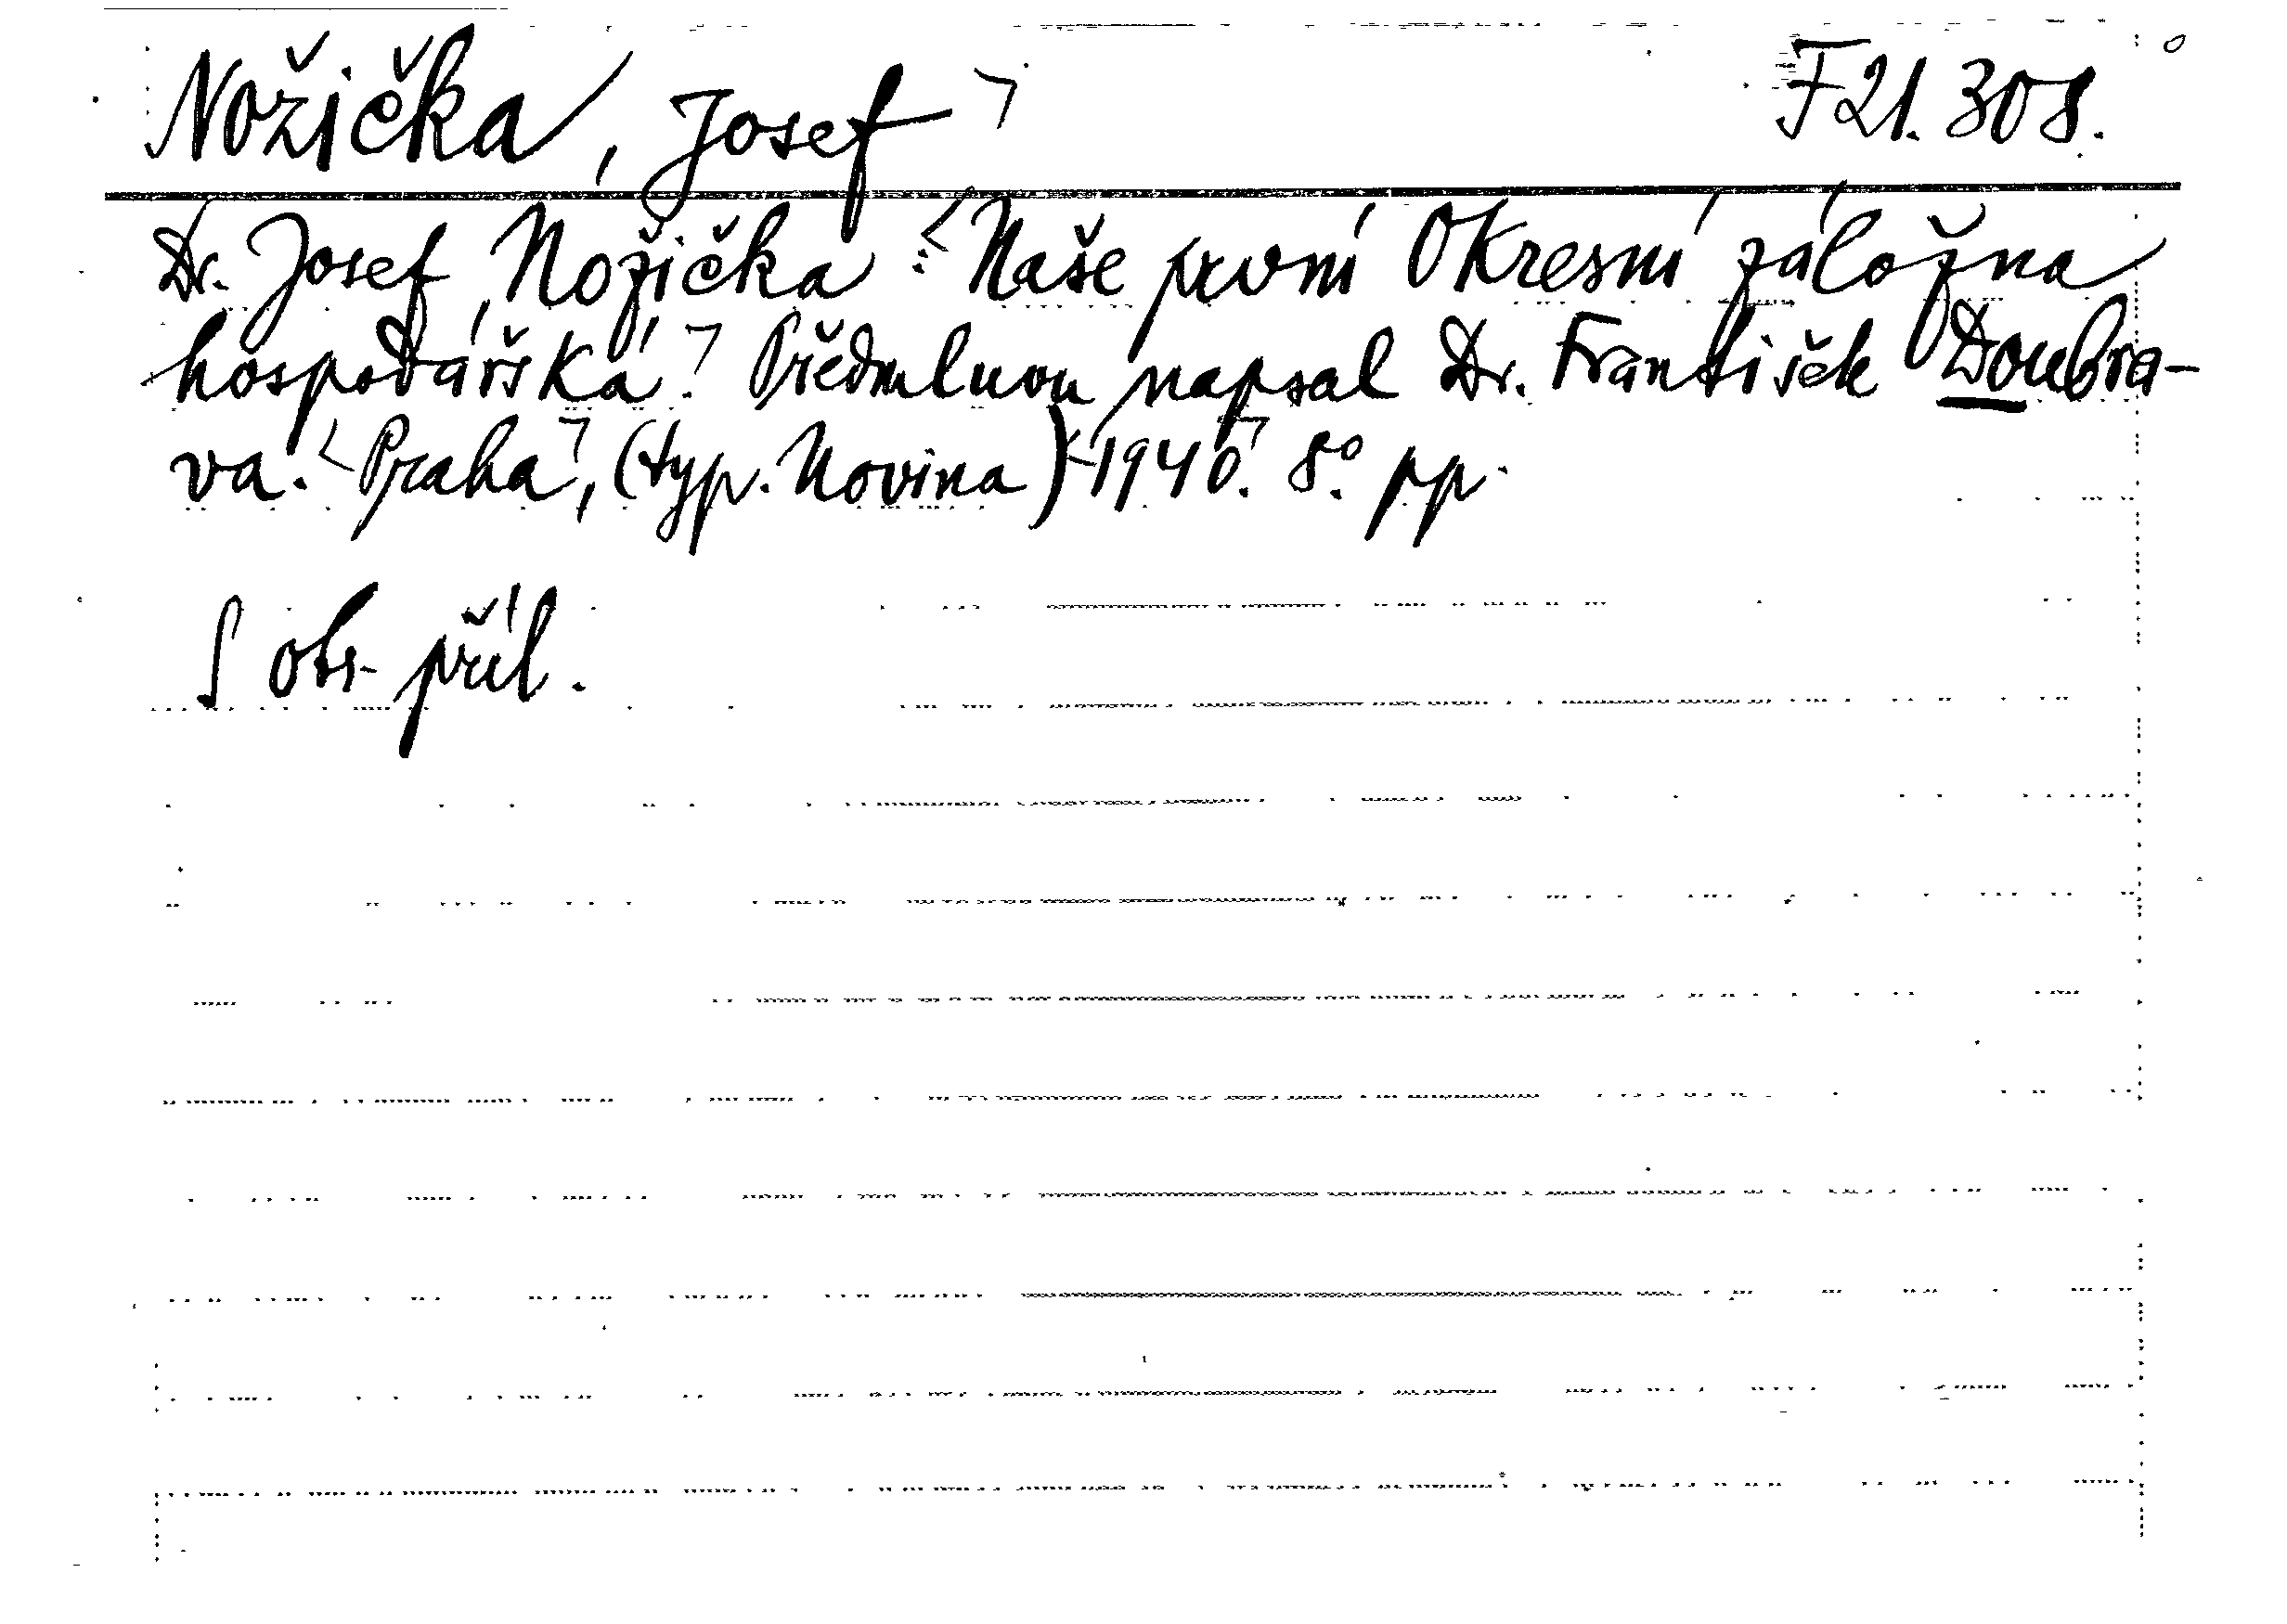 Nožička, Josef ¬ F 21.308.
Dr. Josef Nožička: <Naše první Okresní záložna
hospodářská.¬ Předmluvu napsal Dr. František Doubra-
va. <Praha¬, (typ. Novina) <1940¬. 8°. pp.
S obr. příl.